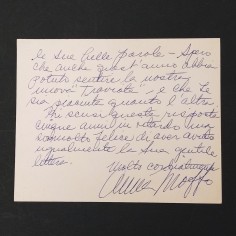 le Sue belle parole – Spero
che anche quest'anno abbia
potuto sentire la nostra
nuova "Traviata", e che le
sia piaciuta quanto l'altra.
Mi scusi questa risposta
cinque anni in ritardo ma
sono molto felice di aver avuto
ugualmente la Sua gentile
lettera.
Molto cordialmente
Anna Moffo